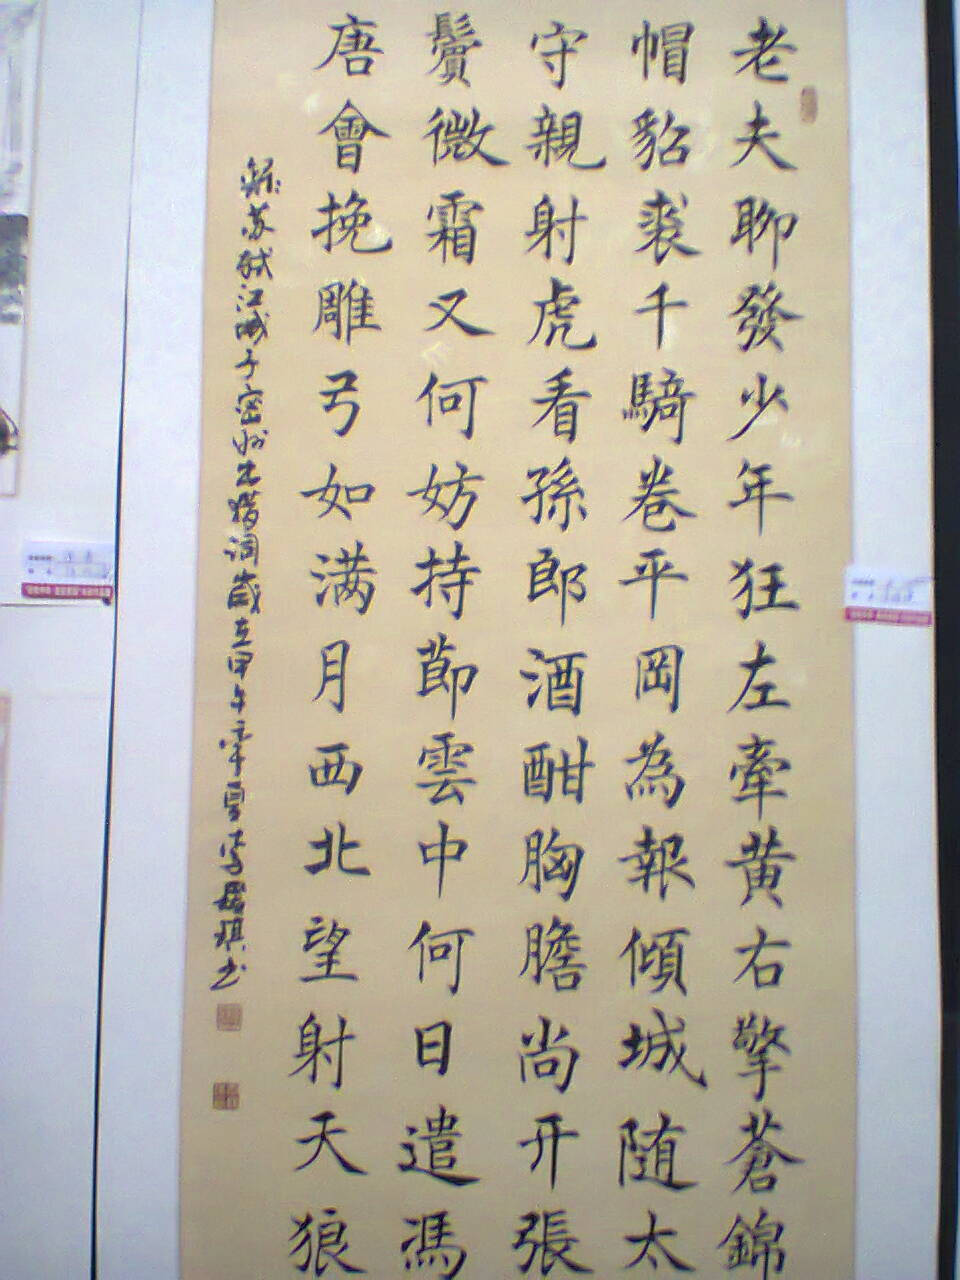 老夫聊發少年狂左牽黄右擎蒼錦
帽貂裘千騎卷平岡為報傾城随太
守親射虎看孫郎酒酣胸膽尚开張
鬢微霜又何妨持節雲中何日遣馮
唐會挽雕弓如满月西北望射天狼
苏轼江城子密州出猎词歲在甲午